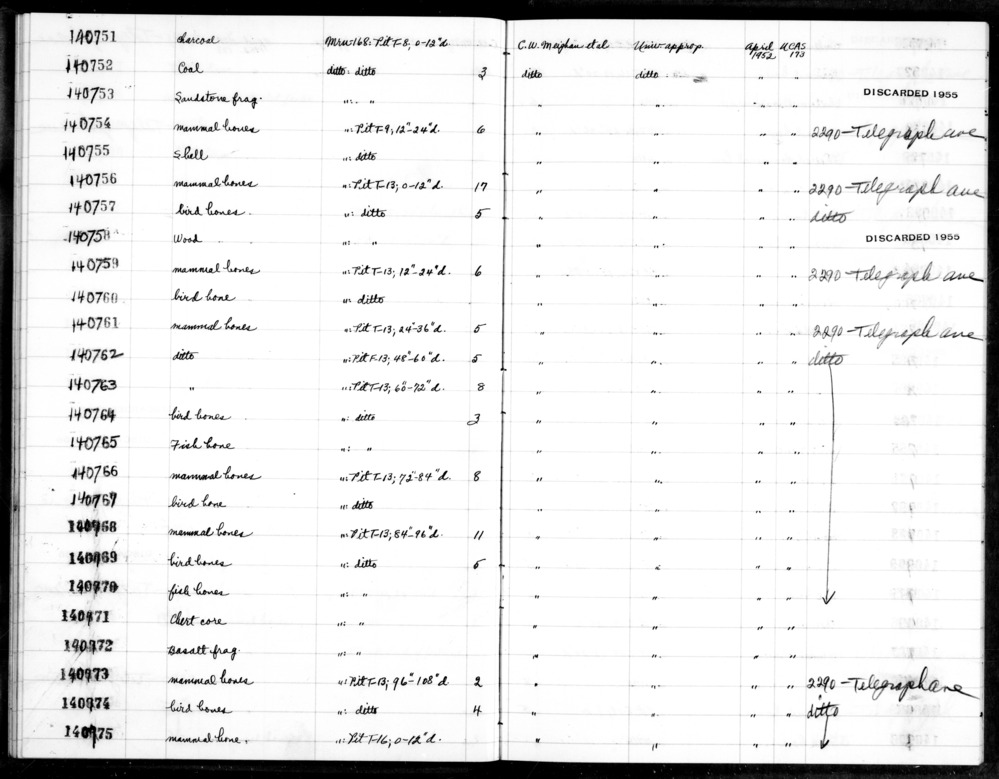 140751 charcoal Mrn-168: Pit T-8; 0-12"d. C.W. Meighan et al Univ. approp. April 1952 UCAS 173
140752 Coal ditto: ditto 3 ditto ditto " "
140753 Sandstone frag. ": " " " " " DISCARDED 1955
140754 mammal bones ": Pit T-9; 12"-24"d. 6 " " " " 2290-Telegraph ave
140755 Shell ": ditto " " " "
140756 mammal bones ": Pit T-13; 0-12"d. 17 " " " " 2290-Telegraph ave
140757 bird bones. ": ditto 5 " " " " ditto
140758 Wood ": " " " " " DISCARDED 1955
140759 mammal bones ": Pit T-13; 12"-24"d. 6 " " " " 2290-Telegraph ave
140760 bird bone ": ditto " " " "
140761 mammal bones ": Pit T-13; 24"-36"d. 5 " " " " 2290-Telegraph ave
140762 ditto ": Pit T-13; 48"-60"d. 5 " " " " ditto
140763 " ": Pit T-13; 60"-72"d. 8 " " " "
140764 bird bones ": ditto 3 " " " "
140765 Fish bone ": " " " " "
140766 mammal bones ": Pit T-13; 72"-84"d. 8 " " " "
140767 bird bone ": ditto " " " "
140768 mammal bones ": Pit T-13; 84"-96"d. 11 " " " "
140769 bird bones ": ditto 5 " " " "
140770 fish bones ": " " " " "
140771 Chert core ": " " " " "
140772 Basalt frag. ": " " " " "
140773 mammal bones ": Pit T-13; 96"-108"d 2 " " " " 2290-Telegraph ave
140774 bird bones ": ditto 4 " " " " ditto
140775 mammal bone. ": Pit T-16; 0-12"d. " " " "